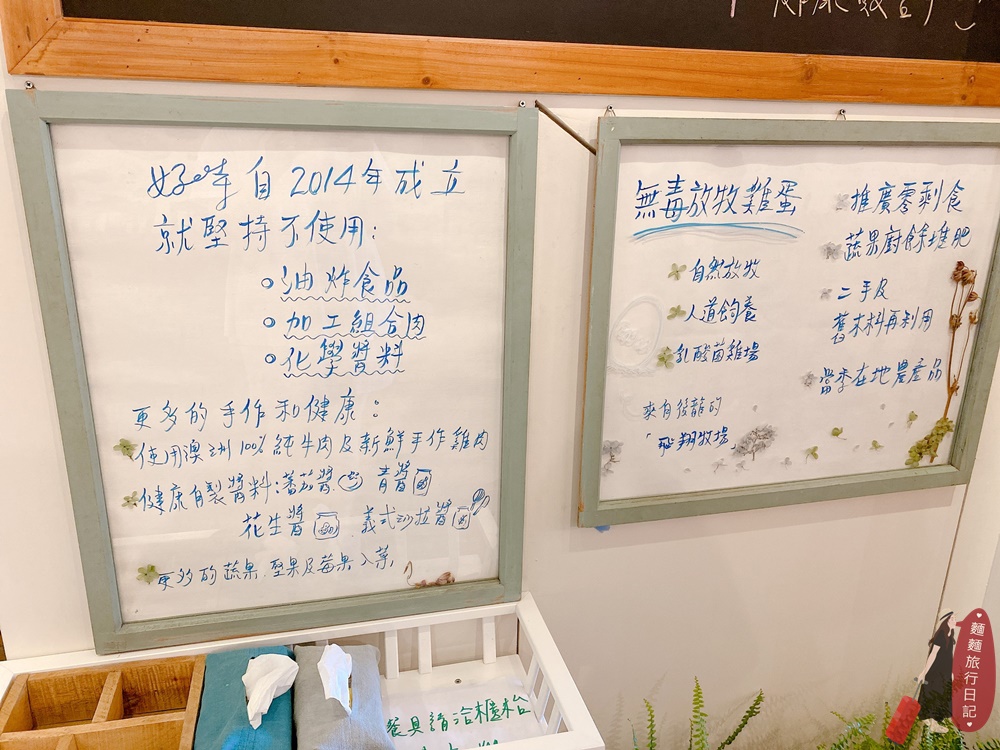 好哖自2014年成立
就堅持不使用：
油炸食品
加工組合肉
化學醬料
更多的手作和健康：
使用澳洲100%純牛肉及新鮮手作雞肉
健康自製醬料：蕃茄醬 青醬
花生醬 義式沙拉醬
更多的蔬果、堅果及莓果入菜
無毒放牧雞蛋
自然放牧
人道飼養
乳酸菌雞場
來自後龍的
「飛翔牧場」
推廣零剩食
蔬果廚餘堆肥
二手及
舊木料再利用
當季在地農產品
餐具請洽櫃枱
麵麵旅行日記